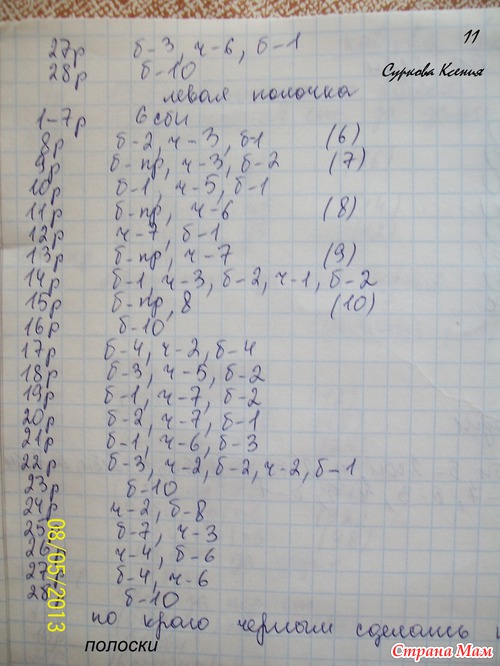 11
27р б-3, ч-6, б-1
28р б-10
Суркова Ксения
левая полочка
1-7р 6 сбн
8р б-2, ч-3, б1 (6)
9р б-пр, ч-3, б-2 (7)
10р б-1, ч-5, б-1
11р б-пр, ч-6 (8)
12р ч-7, б-1
13р б-пр, ч-7 (9)
14р б-1, ч-3, б-2, ч-1, б-2
15р б-пр, 8 (10)
16р б-10
17р б-4, ч-2, б-4
18р б-3, ч-5, б-2
19р б-1, ч-7, б-2
20р б-2, ч-7, б-1
21р б-1, ч-6, б-3
22р б-3, ч-2, б-2, ч-2, б-1
23р б-10
24р ч-2, б-8
25р б-7, ч-3
26р ч-4, б-6
27р б-4, ч-6
28р б-10
по краю черным сделать
полоски
08/05/2013
Страна Мам